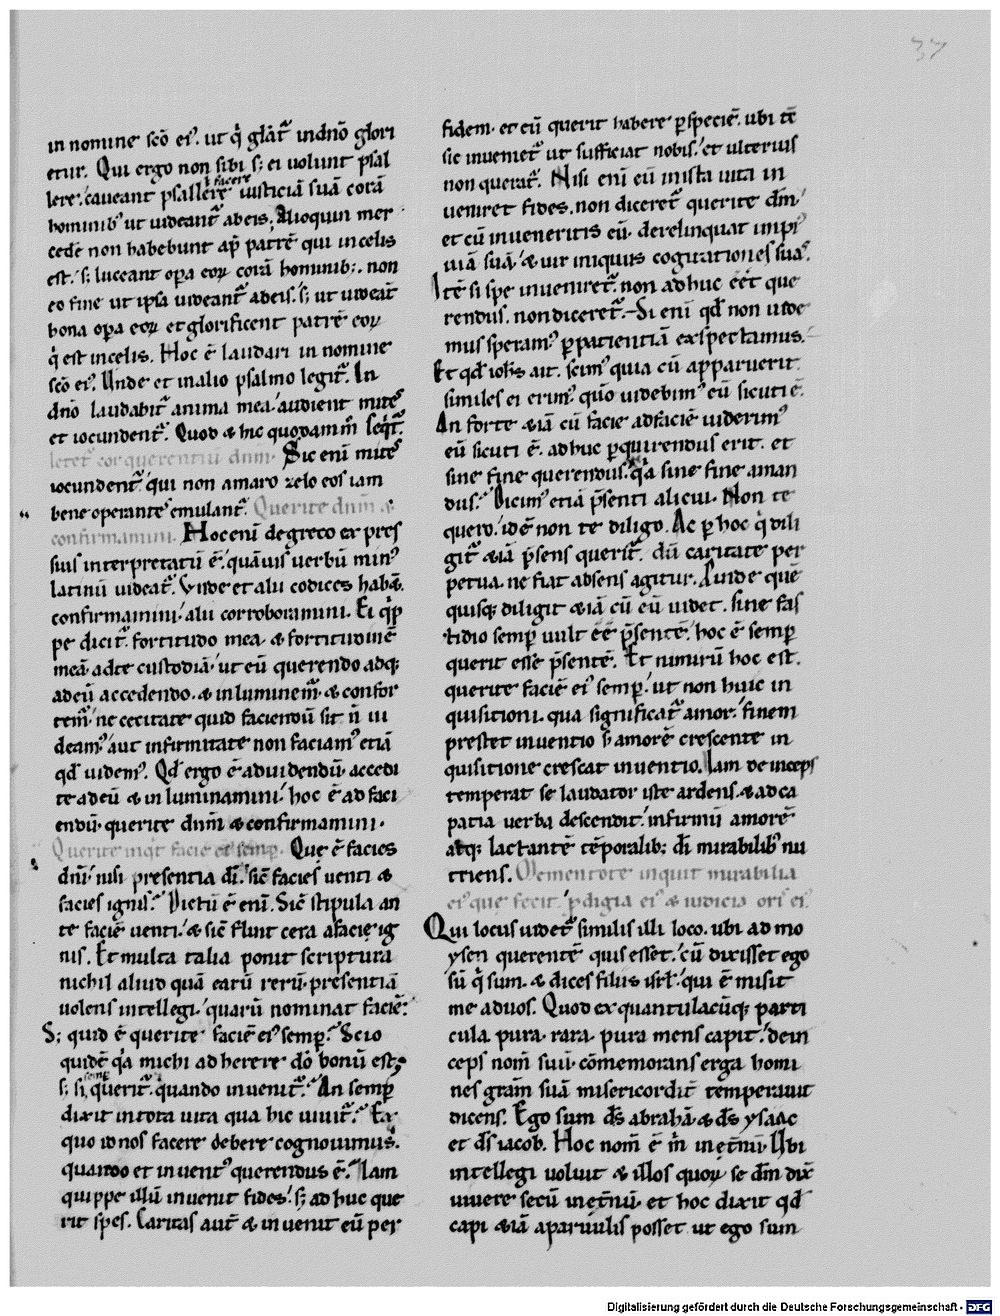 37
in nomine scō ei᾽. ut q̇ gl̄at᷑ in dn̄o glori
etur. Qui ergo non sibi s; ei uolunt psal
lere. caueant psallere ł facere iusticiā suā corā
hominib᾽ ut uideant᷑ ab eis. Alioquin mer
cedē non habebunt ap̄ patrē qui in celis
est. s; luceant op̄a eoꝝ corā hominib;. non
eo fine ut ipsa uideant᷑ ab eis. s; ut uideāt
bona op̄a eoꝝ et glorificent patrē eoꝝ
q̇ est in celis. Hoc ē laudari in nomine
scō ei᾽. Unde et in alio psalmo legit᷑. In
dn̄o laudabit᷑ anima mea. audient mites
et iocundent᷑. Quod & hic quodam m̄ seq̇t᷑.
letet᷑ cor querentiū dnm. Sic eni mites
iocundent᷑ qui non amaro zelo eos iam
bene operantes emulant᷑. Querite dnm̄ &
confirmamini. Hoc eni de greco ex pres
sius interpretatū ē. quāuis uerbū min᾽
latinū uideat᷑. Vnde et alii codices habēt.
confirmamini. alii corroboramini. Ei q̇p
pe dicit᷑. fortitudo mea. & fortitudinē
meā ad te custodiā. ut eū querendo adq;
ad eū accedendo. & inluminem᷑. & confor
tem᷑. ne cecitate quid faciendū sit n̄ ui
deam᾽. aut infirmitate non faciam᾽ etiā
qd̄ uidem᾽. Qd̄ ergo ē ad uidendū. accedi
te ad eū & inluminamini. hoc ē ad faci
endū. querite dnm̄ & confirmamini.
Querite inq̇t faciē ei᾽ semp̄. Que ē facies
dn̄i nisi presentia dī. sic̄ facies uenti &
facies ignis. Dictū ē eni. Sic̄ stipula an
te faciē uenti. & sic̄ fluit cera a facie ig
nis. Et multa talia ponit scriptura
nichil aliud quā earū rerū presentiā
uolens intellegi. quarū nominat faciē.
S; quid ē querite faciē ei᾽ semp̄. Scio
quidē q̇a michi adherere dō bonū est.
s; si semp̄ querit᷑. quando inuenit᷑. An semp̄
dixit in tota uita qua hic uiuit᷑. Ex
quo id nos facere debere cognouimus.
quando et inuent᾽ querendus ē. Iam
quippe illū inuenit fides. s; ad huc que
rit spes. Caritas aut̄ & inuenit eū per
fidem. et eū querit habere p̄ speciē. ubi tc̄
sic inueniet᷑ ut sufficiat nobis. et ulterius
non querat᷑. Nisi eni eū in ista uita in
ueniret fides. non diceret᷑ querite dm̄.
et cū inueneritis eū. derelinquat impi᾽
uiā suā. & uir iniquus cogitationes suas.
Itē si spe inueniret᷑. non adhuc eēt que
rendus. non diceret᷑. Si eni qd̄ non uide
mus speram᾽. p̄ patientiā exspectamus.
Et qd̄ ioh̄s ait. scim᾽ quia cū apparuerit.
similes ei erim᾽. quō uidebim᾽ eū sicuti ē.
An forte &iā cū facie ad faciē uiderim᾽
eū sicuti ē. adhuc p̄quirendus erit. et
sine fine querendus. q̇a sine fine aman
dus. Dicim᾽ etiā p̄senti alicui. Non te
quero. id ē non te diligo. Ac p̄ hoc q̇ dili
git᷑ &iā p̄sens querit᷑. dū caritate per
petua. ne fiat absens agitur. Proinde quē
quisq; diligit &iā cū eū uidet. sine fas
tidio semp̄ uult eē p̄sentē. hoc ē semp̄
querit esse p̄sentē. Et nimirū hoc est.
querite faciē ei᾽ semp̄. ut non huic in
quisitioni. qua significat᷑ amor. finem
prestet inuentio s; amorē crescente in
quisitione crescat inuentio. Iam deinceps
temperat se laudator iste ardens. & ad ca
patia uerba descendit. infirmū amorē
atq; lactantē tēporalib; dī mirabilib᾽ nu
triens. Mementote inquit mirabilia
ei᾽ que fecit. p̄digia ei᾽ & iudicia oris ei᾽.
Qui locus uidet᷑ similis illi loco. ubi ad mo
ysen querentē quis esset. cū dixisset ego
sū q̇ sum. & dices filiis isrl̄. qui ē misit
me ad uos. Quod ex quantulacūq; parti
cula. pura. rara. pura mens capit. dein
ceps nom̄ suū. cōmemorans erga homi
nes grām suā misericordit᷑ temperauit
dicens. Ego sum d̄s abrahā & d̄s ysaac
et d̄s iacob. Hoc nom̄ ē m̄ in et̄nū. Ubi
intellegi uoluit & illos quoꝝ se dm̄ dix̄
uiuere secū in et̄nū. et hoc dixit qd̄
capi &iā a paruulis posset ut ego sum
Digitalisierung gefördert durch die Deutsche Forschungsgemeinschaft - DFG